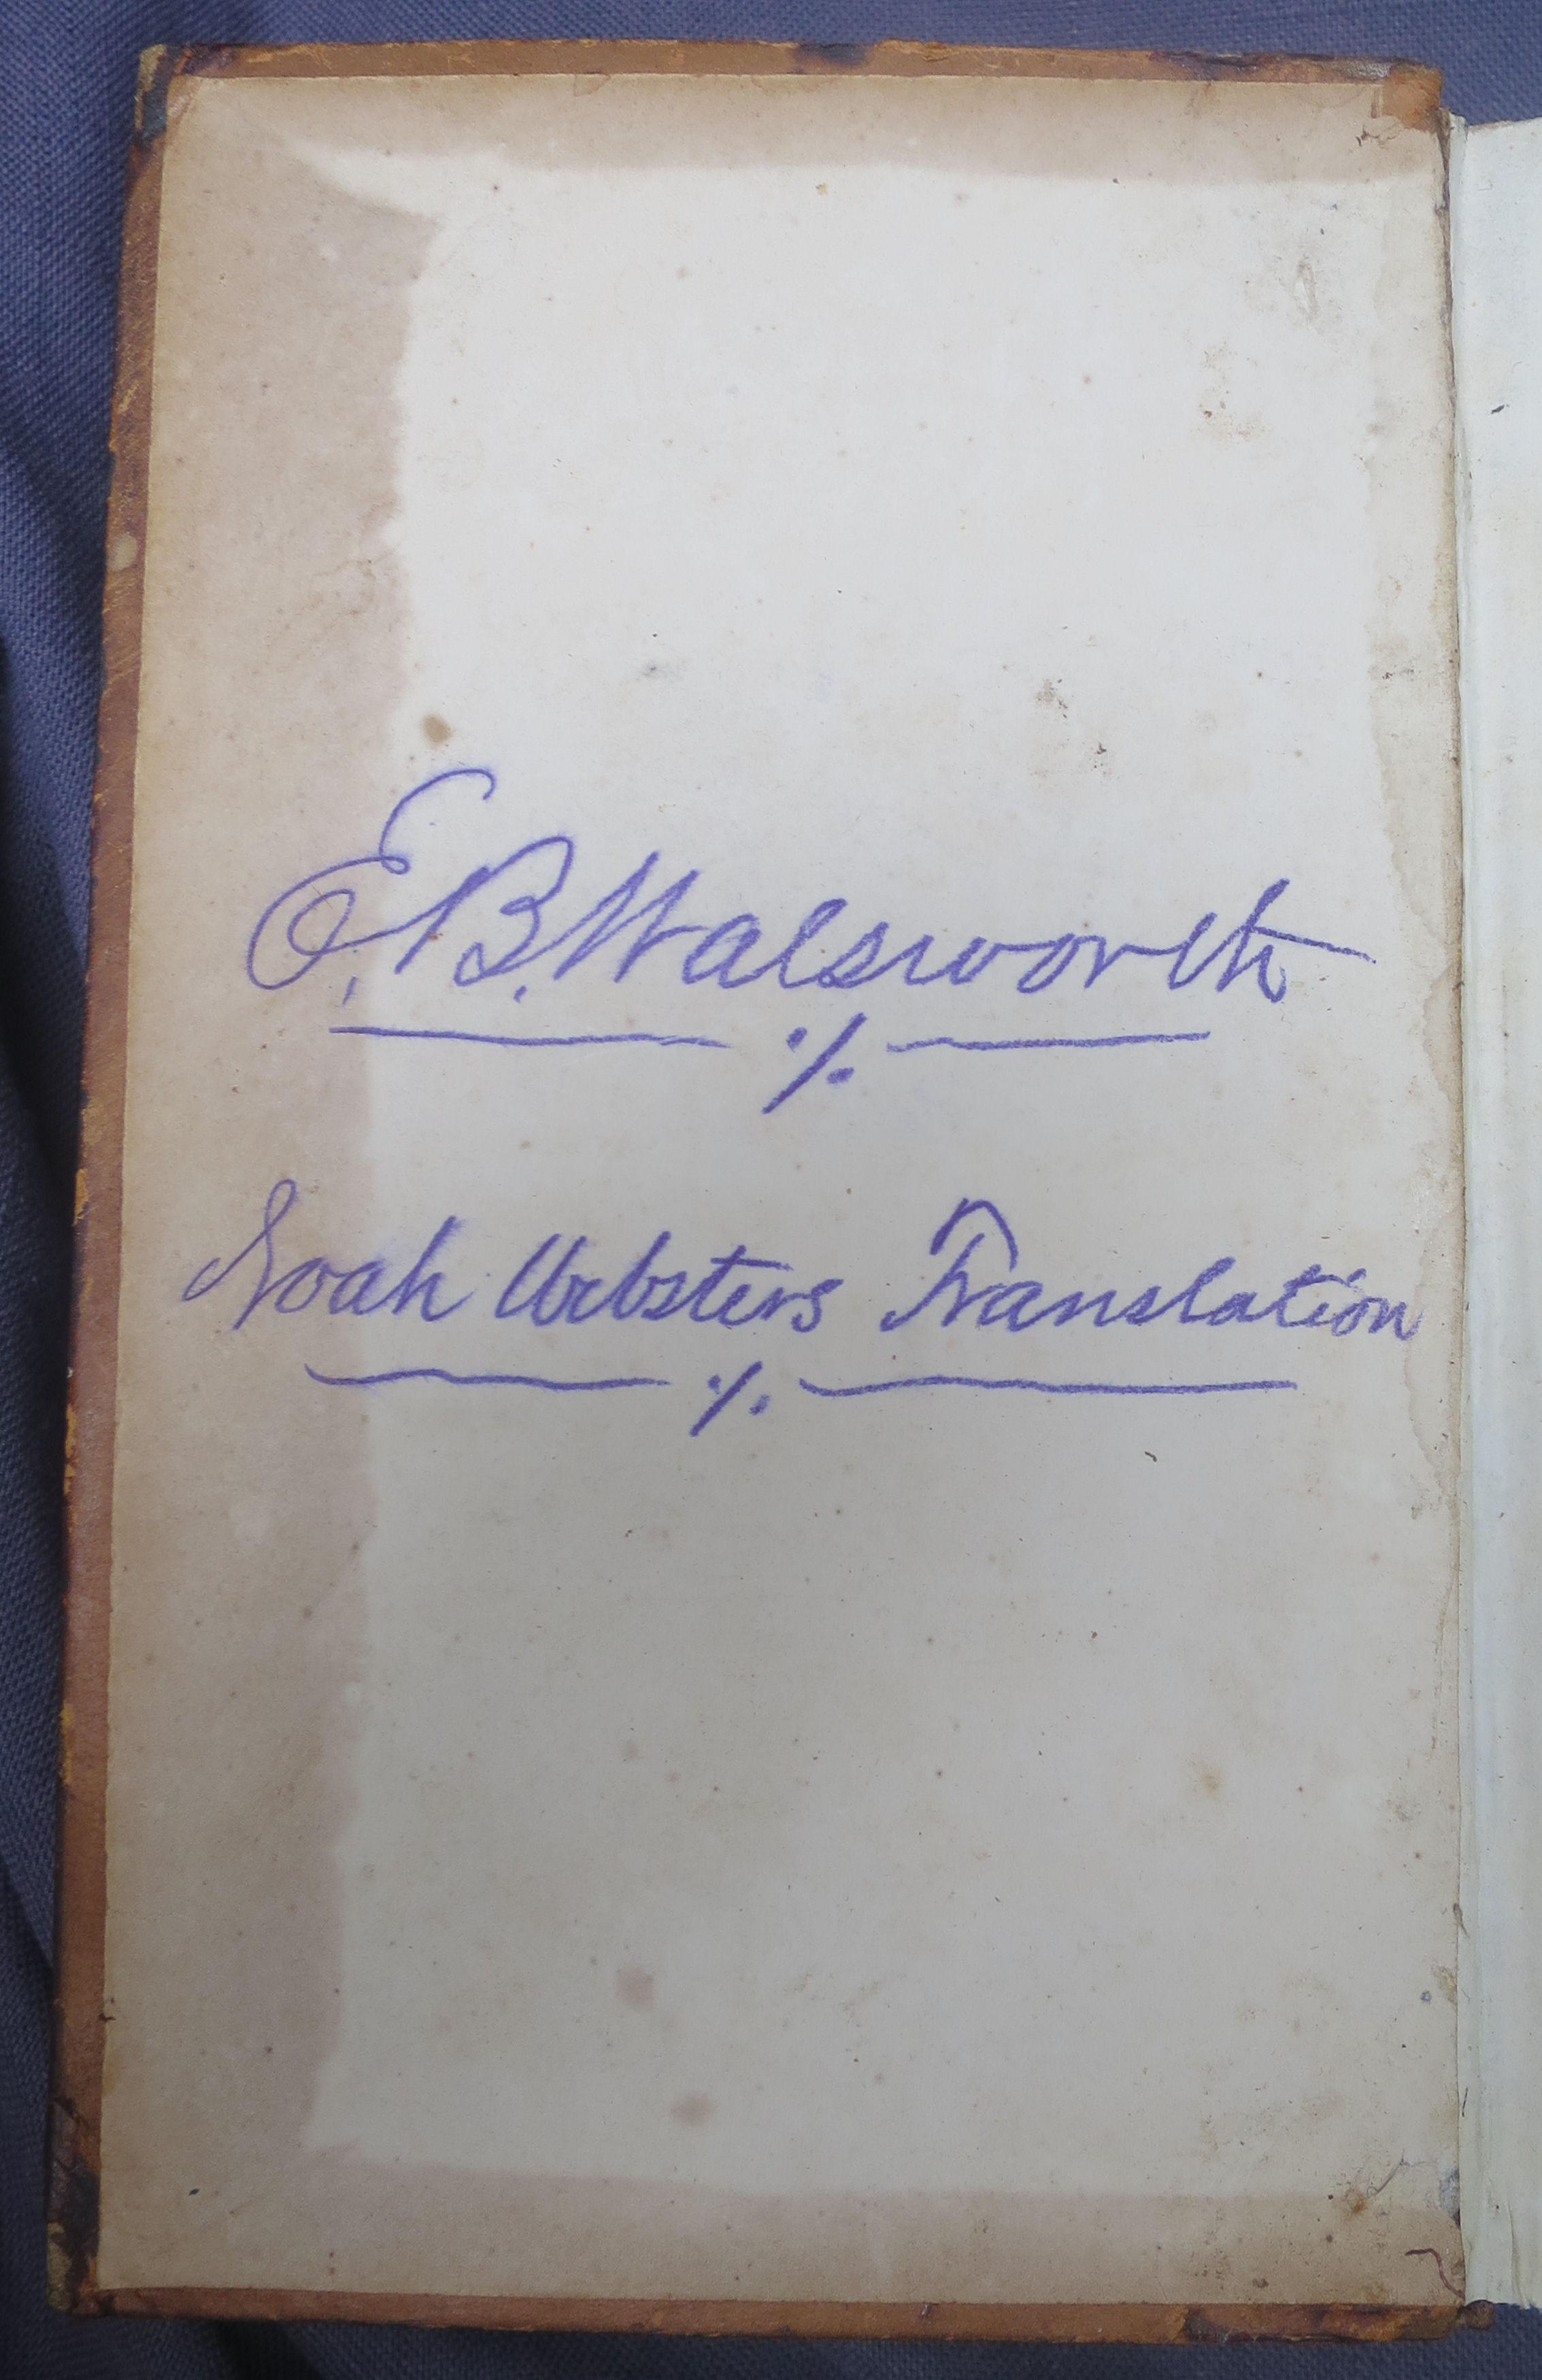 E. B. Walsworth
./.
Noah Websters Translation
./.